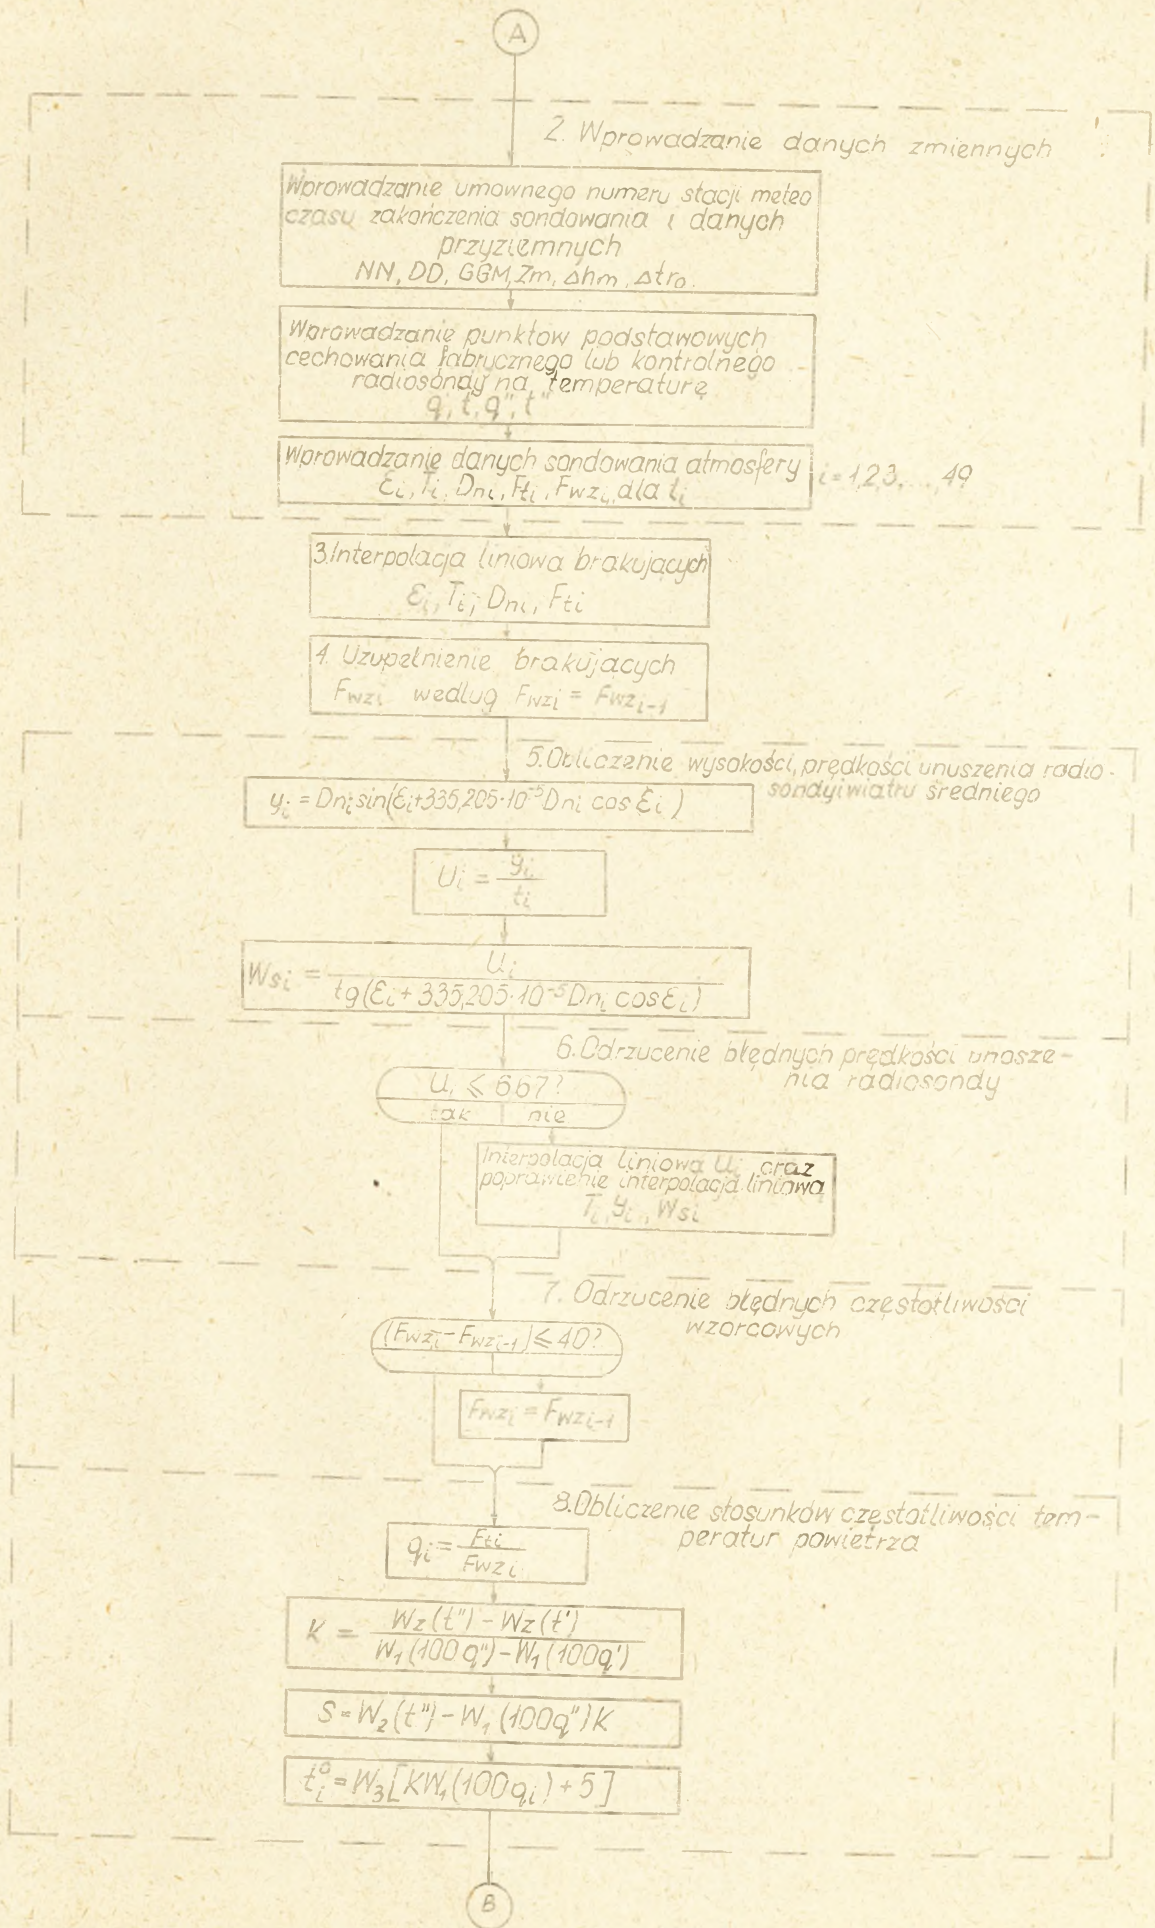 A
2. Wprowadzanie danych zmiennych
Wprowadzanie umownego numeru stacji meteo
czasu zakończenia sondowania i danych
przyziemnych
NN, DD, GGM, Zm, Δhm, Δtro.
Wprowadzanie punktów podstawowych
cechowania fabrycznego lub kontrolnego
radiosondy na temperaturę
q', t', q'', t''
Wprowadzanie danych sondowania atmosfery
Ei, Ti, Dni, Fti, Fwzi, dla ti
i = 1,2,3, ..., 49
3. Interpolacja liniowa brakujących
Ei, Ti, Dni, Fti
4. Uzupełnienie brakujących
Fwzi według Fwzi = Fwzi-1
5. Obliczenie wysokości, prędkości unuszenia radio-
sondy i wiatru średniego
yi = Dni sin(Ei+335,205·10⁻⁵ Dni cos Ei)
Ui = yi / ti
Wsi = Ui / tg(Ei + 335,205·10⁻⁵ Dni cos Ei)
6. Odrzucenie błędnych prędkości unosze-
nia radiosondy
Ui ≤ 667?
tak nie
Interpolacja liniowa Ui oraz
poprawienie interpolacją liniową
Ti, yi, Wsi
7. Odrzucenie błędnych częstotliwości
wzorcowych
(Fwzi - Fwzi-1) ≤ 40?
Fwzi = Fwzi-1
8. Obliczenie stosunków częstotliwości tem-
peratur powietrza
qi = Fti / Fwzi
K = Wz(t'') - Wz(t') / W1(100q'') - W1(100q')
S = W2(t'') - W1(100q'')K
ti° = W3[KW1(100qi) + 5]
B